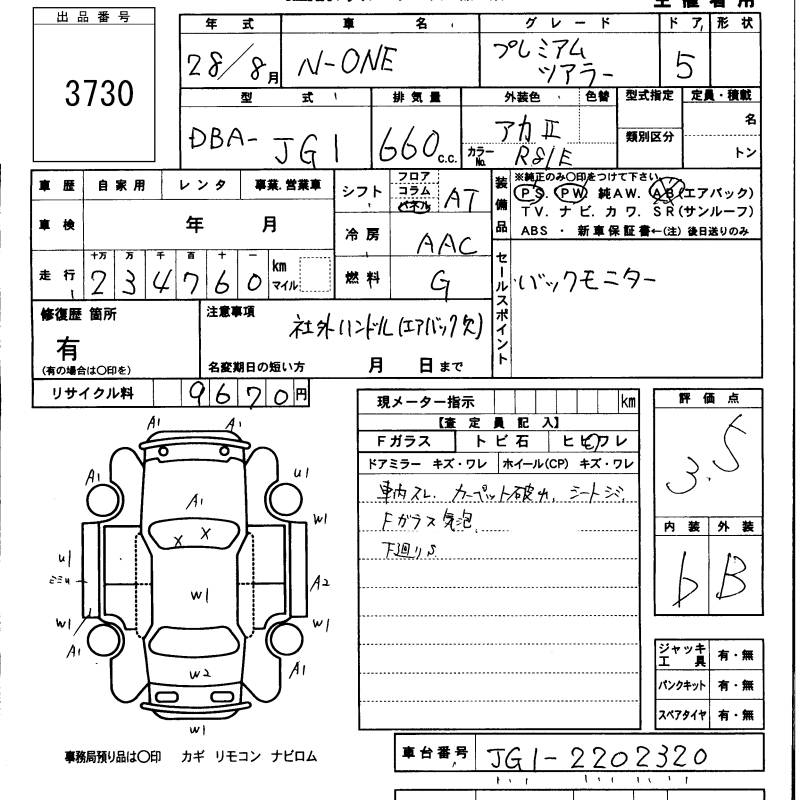 出品番号
3730
年式 車名 グレード ドア 形状
28/8月 N-ONE プレミアム ツアラー 5
型式 排気量 外装色 色替 型式指定 定員・積載
DBA-JG1 660c.c. アカⅡ 類別区分 名
カラーNo. R81E トン
車歴 自家用 レンタ 事業.営業車
車検 年 月
走行 十万 万 千 百 十 一
234760 km マイル
シフト フロア コラム パネル AT
冷房 AAC
燃料 G
装備品
※純正のみ〇印をつけて下さい
PS. PW. 純AW. AB(エアバック)
TV. ナビ. カワ. SR(サンルーフ)
ABS ・ 新車保証書←(注) 後日送りのみ
セールスポイント
バックモニター
修復歴 箇所
有
(有の場合は〇印を)
注意事項
社外ハンドル(エアバック欠)
名変期日の短い方 月 日まで
リサイクル料 9670円
現メーター指示 km
【査定員記入】
Fガラス トビ石 ヒビワレ
ドアミラー キズ・ワレ ホイール(CP) キズ・ワレ
車内スレ. カーペット破れ. シートジ.
Fガラス気泡.
下廻りS
評価点
3.5
内装 外装
b B
ジャッキ工具 有・無
パンクキット 有・無
スペアタイヤ 有・無
A1 A1
A1 U1
A1 W1
X X
U1
W1 A2
W1 W1
A1 W2 A1
W1
事務局預り品は〇印 カギ リモコン ナビロム
車台番号 JG1-2202320